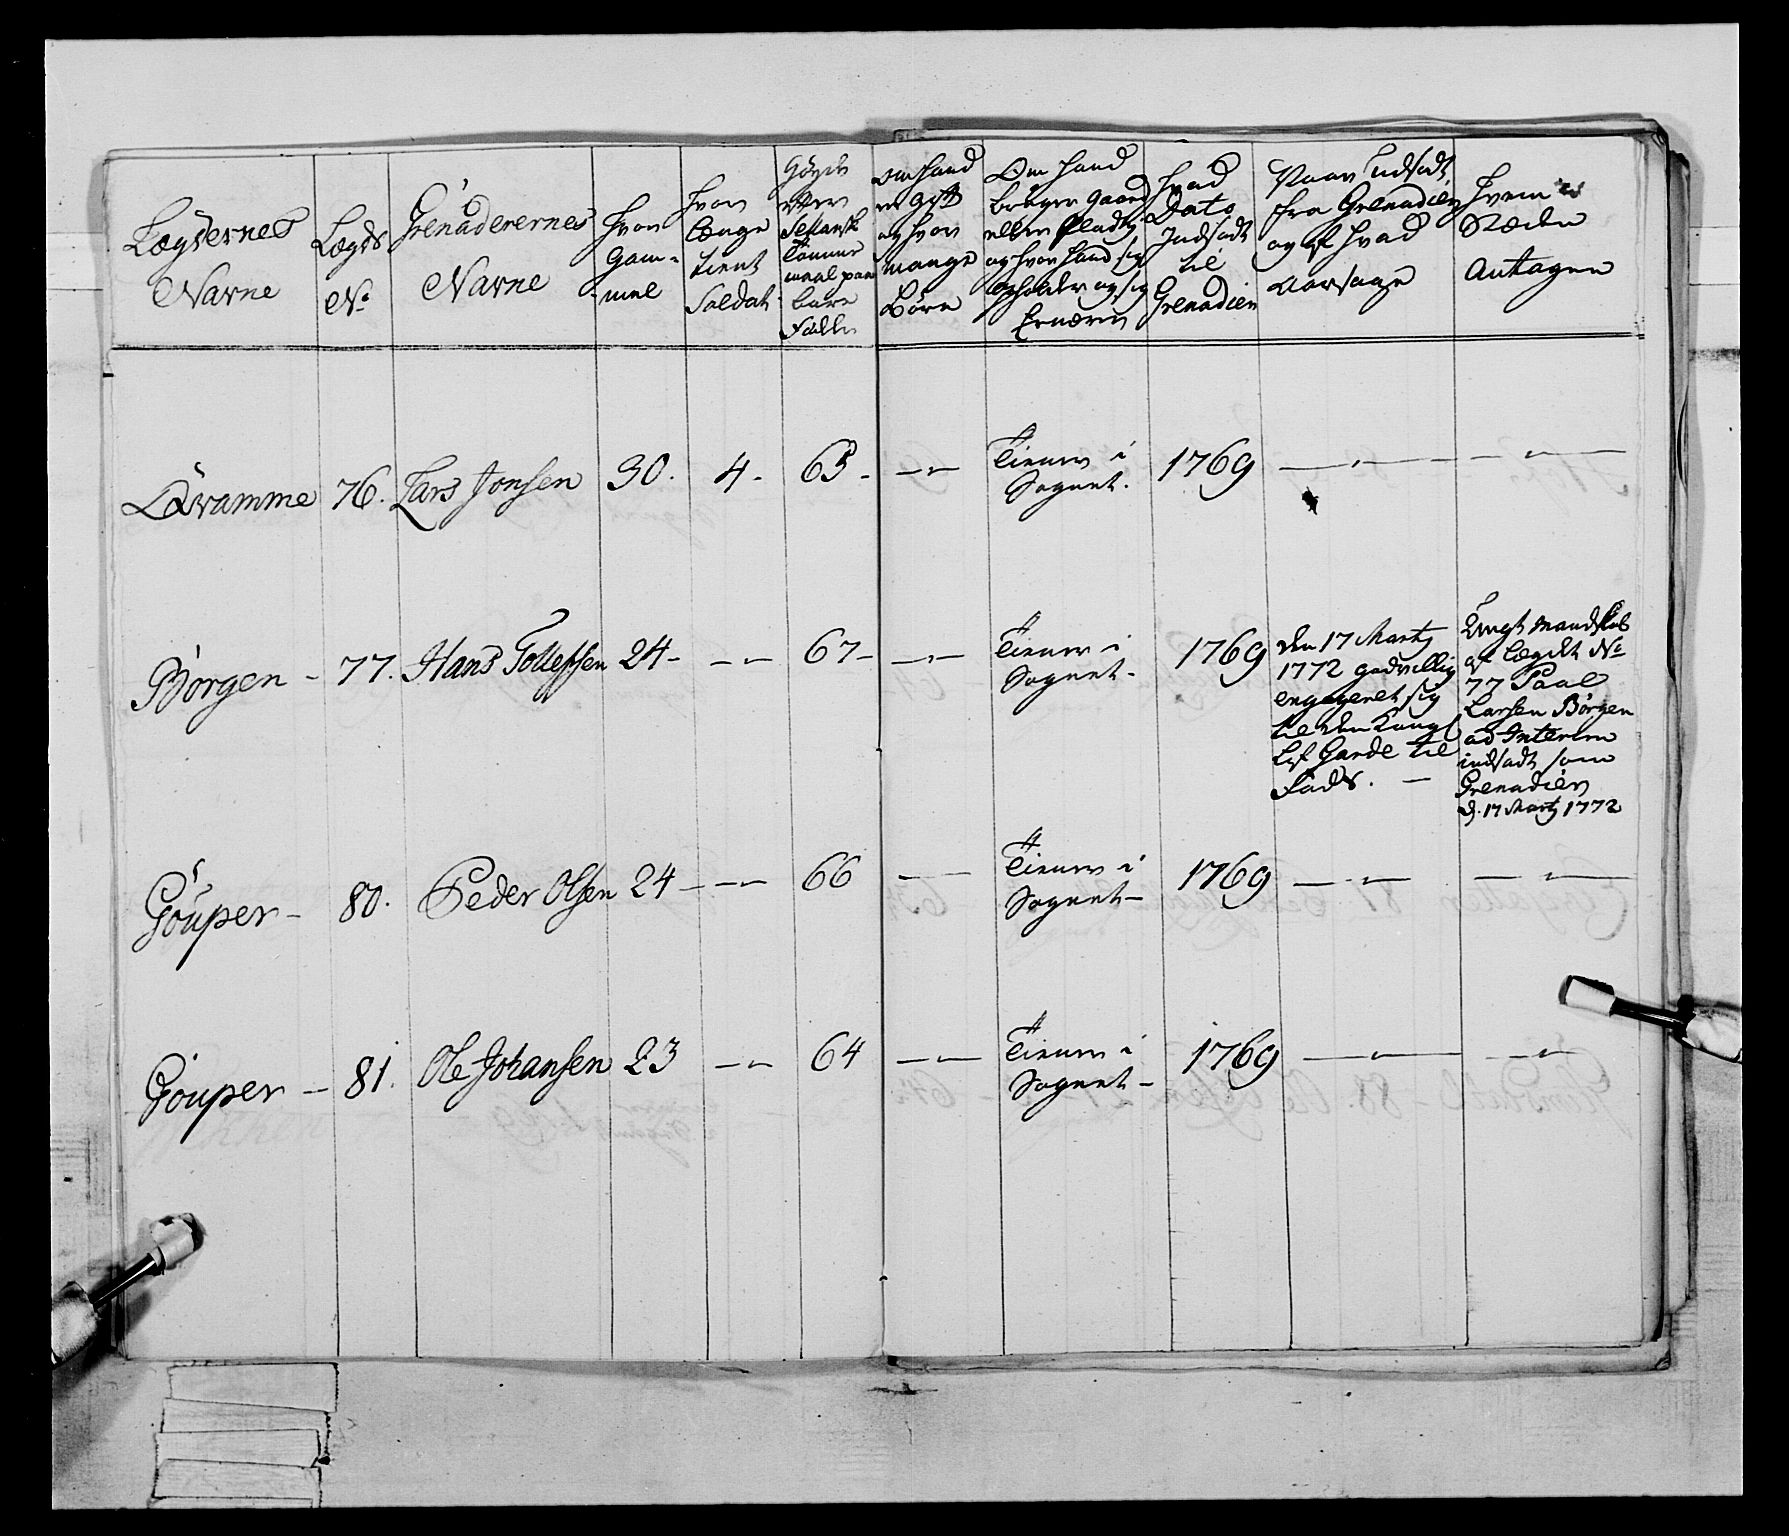 Lægdernes
Navne
Lægds
No
Grenaderernes
Navne
Hvor
Gam-
mel
Hvor
Længe
tient
Soldat
Høyde
efter
Sellandsk
Tomme
maal paa
bare
Fødder
Om hand
er Gift
og hvor
mange
Børn
Om hand
bruger Gaard
eller Plads
og hvor hand sig
opholder og sig
Ernærer
Hvad
Dato
Indsadt
til
Grenadier
Naar Udsadt
fra Grenadier
og af hvad
Aarsage
Hvem i
Stæden
Antagen
Qvamme 76. Lars Jonsen 30. 4. 63 - Tiener i
Sognet. 1769
Børgen - 77. Hans Tollefsen 24 - 67 - Tiener i
Sognet. 1769
den 17 Martij
1772 godvillig
engageret sig
til den Kongl
Lif Garde til
Fods. -
Ungt Mandskab
af Lægdet No
77 Paal
Larsen Børgen
ad Interim
indsadt som
Grenadier
d. 17 Martij 1772
Góuper - 80. Peder Olsen 24 - 66 Tiener i
Sognet - 1769
Góuper - 81. Ole Johansen 23 64 Tiener i
Sognet - 1769